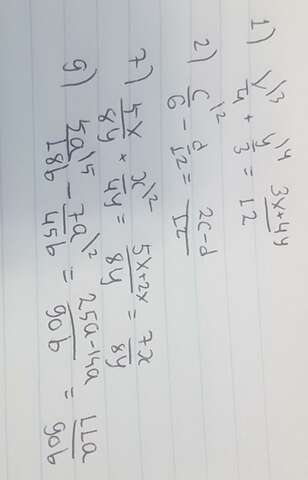 1) x/4\3 + y/3\4 = 3x+4y/12
2) c/6\2 - d/12 = 2c-d/12
7) 5x/8y + x/4y\2 = 5x+2x/8y = 7x/8y
9) 5a/18b\5 - 7a/45b\2 = 25a-14a/90b = 11a/90b